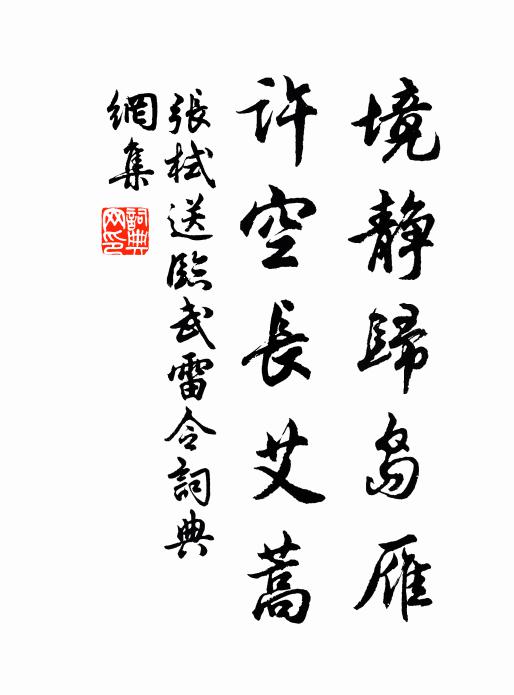 境靜歸島雁
許空長艾蒿
張栻送臨武雷令詞典
網集
詞典
网印